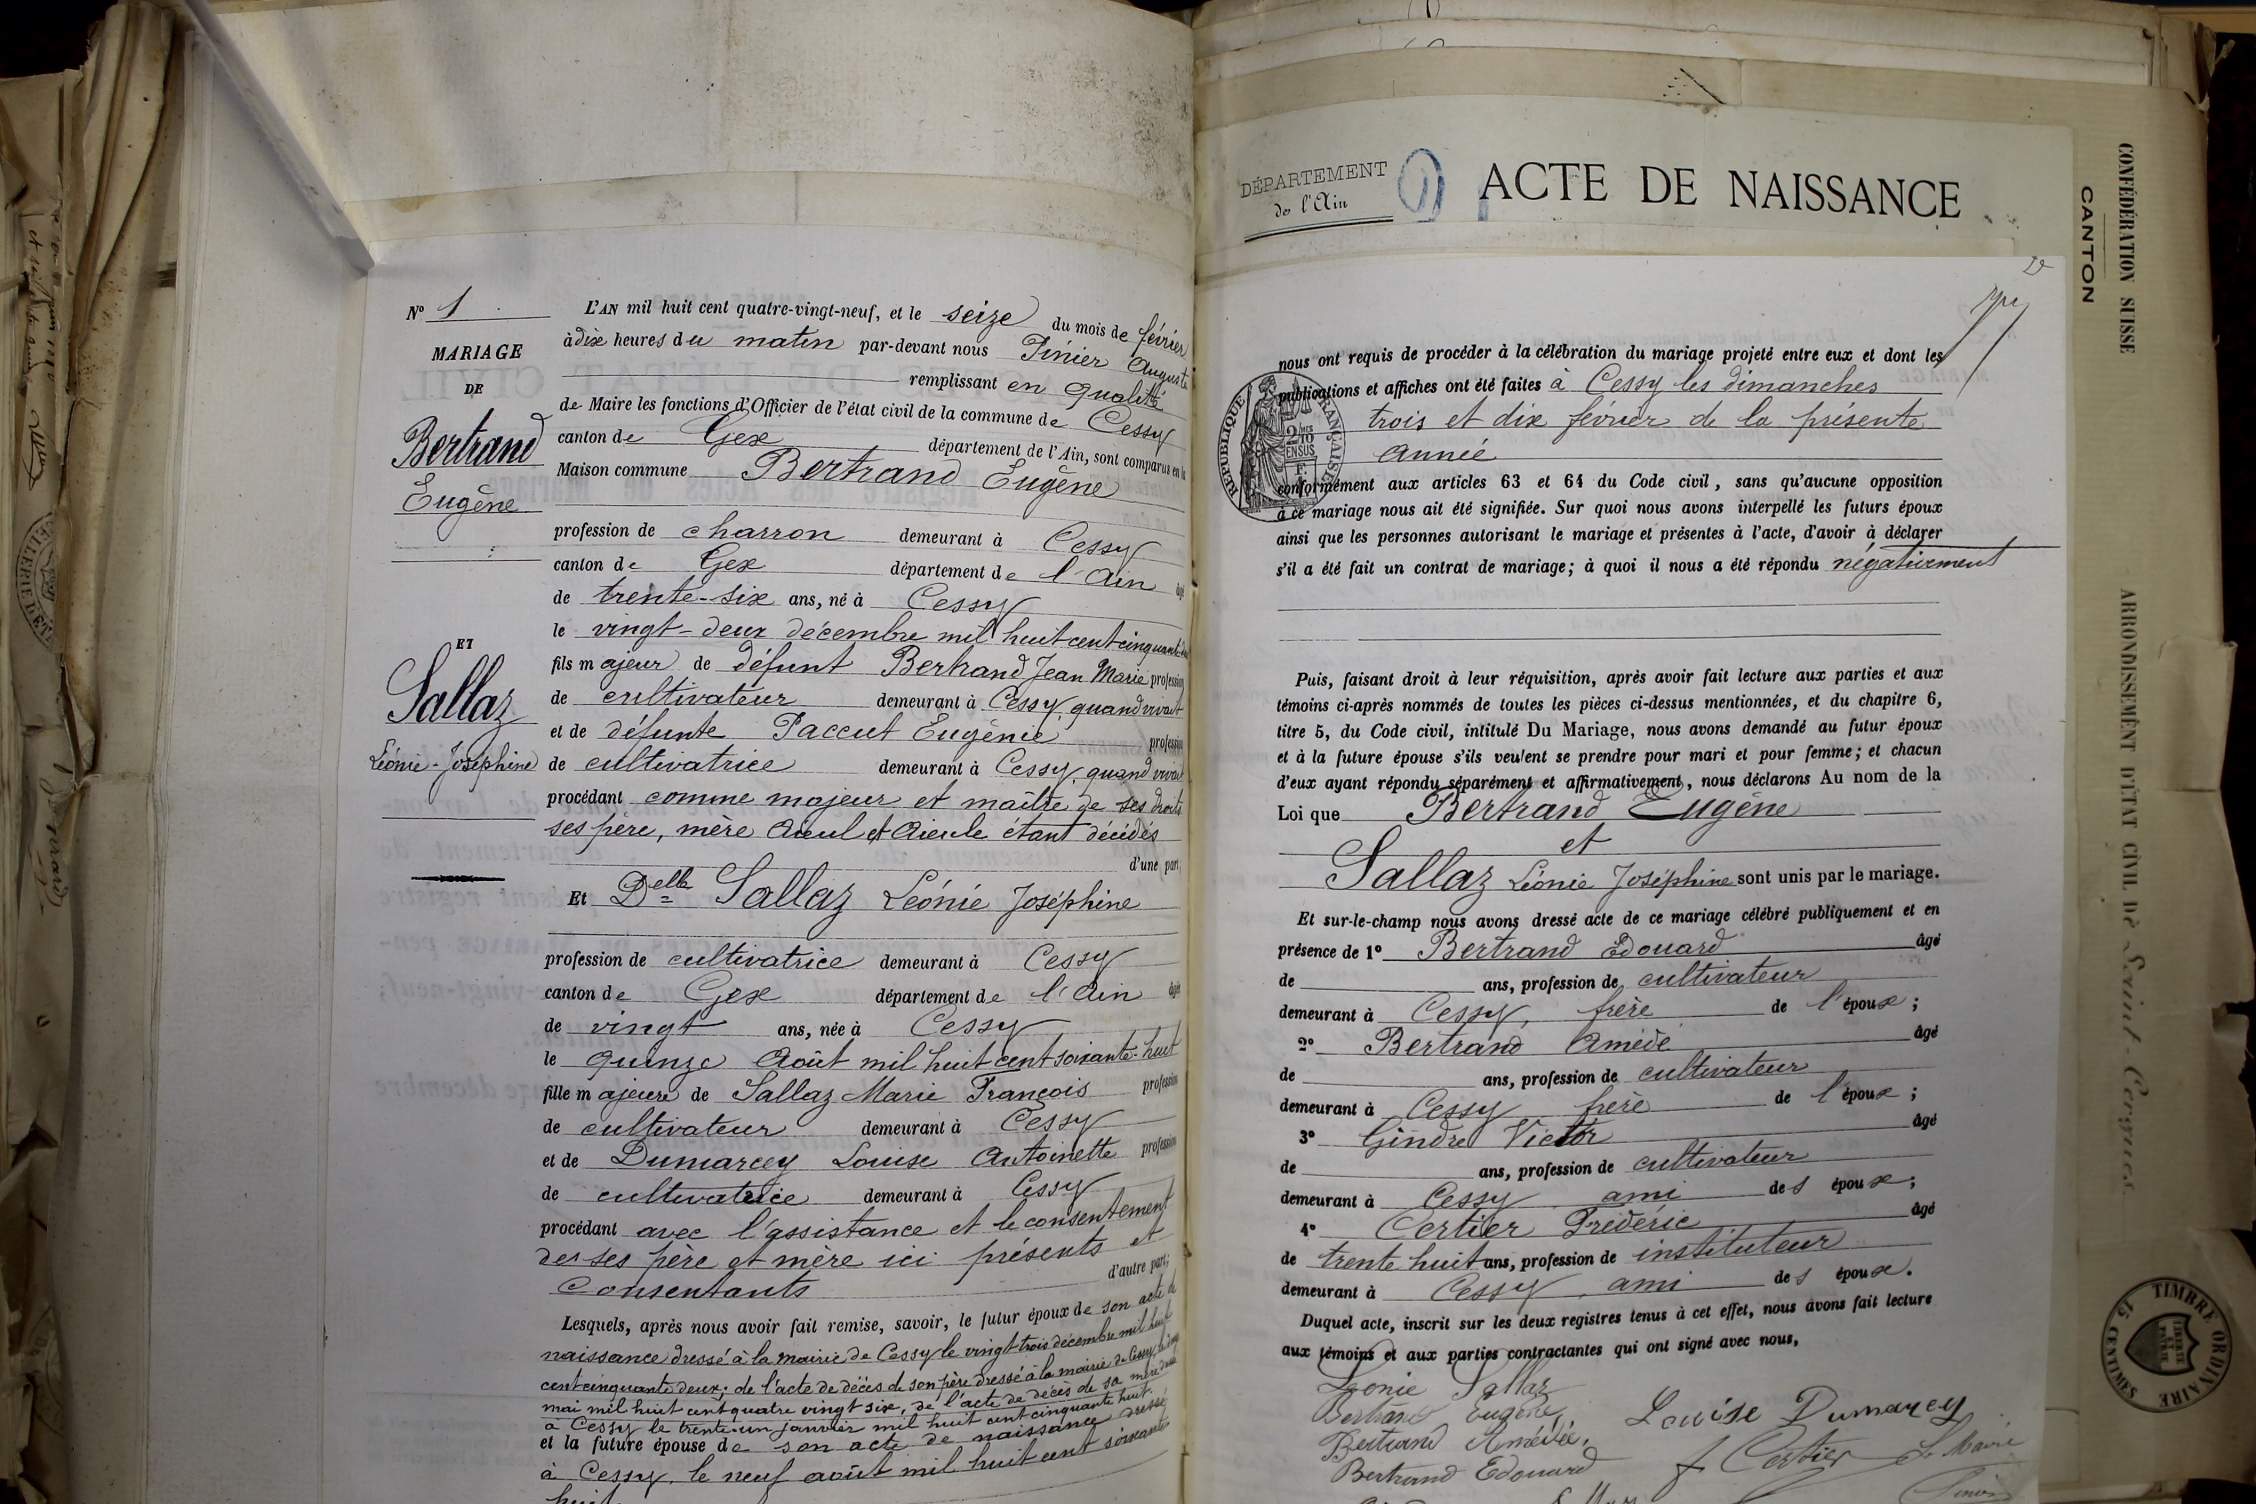 No 1
MARIAGE
DE
Bertrand
Eugène
ET
Sallaz
Léonie-Joséphine
L'AN mil huit cent quatre-vingt-neuf, et le seize du mois de février
à dix heures du matin par-devant nous Pinier Auguste
remplissant en qualité
de Maire les fonctions d'Officier de l'état civil de la commune de Cessy
canton de Gex département de l'Ain, sont comparus en la
Maison commune Bertrand Eugène
profession de charron demeurant à Cessy
canton de Gex département de l'Ain âgé
de trente-six ans, né à Cessy
le vingt-deux décembre mil huit cent cinquante-deux
fils majeur de défunt Bertrand Jean Marie profession
de cultivateur demeurant à Cessy, quand vivait
et de défunte Paccut Eugénie profession
de cultivatrice demeurant à Cessy, quand vivait
procédant comme majeur et maître de ses droits
ses père, mère aieul et aieule étant décédés
d'une part;
Et Delle Sallaz Léonie Joséphine
profession de cultivatrice demeurant à Cessy
canton de Gex département de l'Ain âgée
de vingt ans, née à Cessy
le quinze Août mil huit cent soixante-huit
fille majeure de Sallaz Marie François profession
de cultivateur demeurant à Cessy
et de Dumarcey Louise Antoinette profession
de cultivatrice demeurant à Cessy
procédant avec l'assistance et le consentement
des ses père et mère ici présents et
consentants d'autre part;
Lesquels, après nous avoir fait remise, savoir, le futur époux de son acte de
naissance dressé à la mairie de Cessy le vingt-trois décembre mil huit
cent cinquante deux; de l'acte de décès de son père dressé à la mairie de Cessy le
mai mil huit cent quatre vingt six, de l'acte de décès de sa mère
à Cessy le trente-un janvier mil huit cent cinquante huit.
et la future épouse de son acte de naissance dressé
à Cessy, le neuf août mil huit cent soixante
huit
DÉPARTEMENT
de l'Ain
ACTE DE NAISSANCE
nous ont requis de procéder à la célébration du mariage projeté entre eux et dont les
publications et affiches ont été faites à Cessy les dimanches
trois et dix février de la présente
année
conformément aux articles 63 et 64 du Code civil, sans qu'aucune opposition
à ce mariage nous ait été signifiée. Sur quoi nous avons interpellé les futurs époux
ainsi que les personnes autorisant le mariage et présentes à l'acte, d'avoir à déclarer
s'il a été fait un contrat de mariage; à quoi il nous a été répondu négativement
Puis, faisant droit à leur réquisition, après avoir fait lecture aux parties et aux
témoins ci-après nommés de toutes les pièces ci-dessus mentionnées, et du chapitre 6,
titre 5, du Code civil, intitulé Du Mariage, nous avons demandé au futur époux
et à la future épouse s'ils veulent se prendre pour mari et pour femme; et chacun
d'eux ayant répondu séparément et affirmativement, nous déclarons Au nom de la
Loi que Bertrand Eugène
et
Sallaz Léonie Joséphine sont unis par le mariage.
Et sur-le-champ nous avons dressé acte de ce mariage célébré publiquement et en
présence de 1o Bertrand Edouard âgé
de ans, profession de cultivateur
demeurant à Cessy, frère de l'époux;
2o Bertrand Amédé âgé
de ans, profession de cultivateur
demeurant à Cessy frère de l'époux;
3o Gindre Victor âgé
de ans, profession de cultivateur
demeurant à Cessy ami des époux;
4o Certier Frédéric âgé
de trente huit ans, profession de instituteur
demeurant à Cessy, ami des époux.
Duquel acte, inscrit sur les deux registres tenus à cet effet, nous avons fait lecture
aux témoins et aux parties contractantes qui ont signé avec nous,
Léonie Sallaz
Bertrand Eugène
Louise Dumarcey
Bertrand Amédée.
f Certier Le Maire
Bertrand Edouard
RÉPUBLIQUE FRANÇAISE
CONFÉDÉRATION SUISSE
CANTON
ARRONDISSEMENT D'ÉTAT CIVIL DE Saint-Cergues
TIMBRE ORDINAIRE
15 CENTIMES